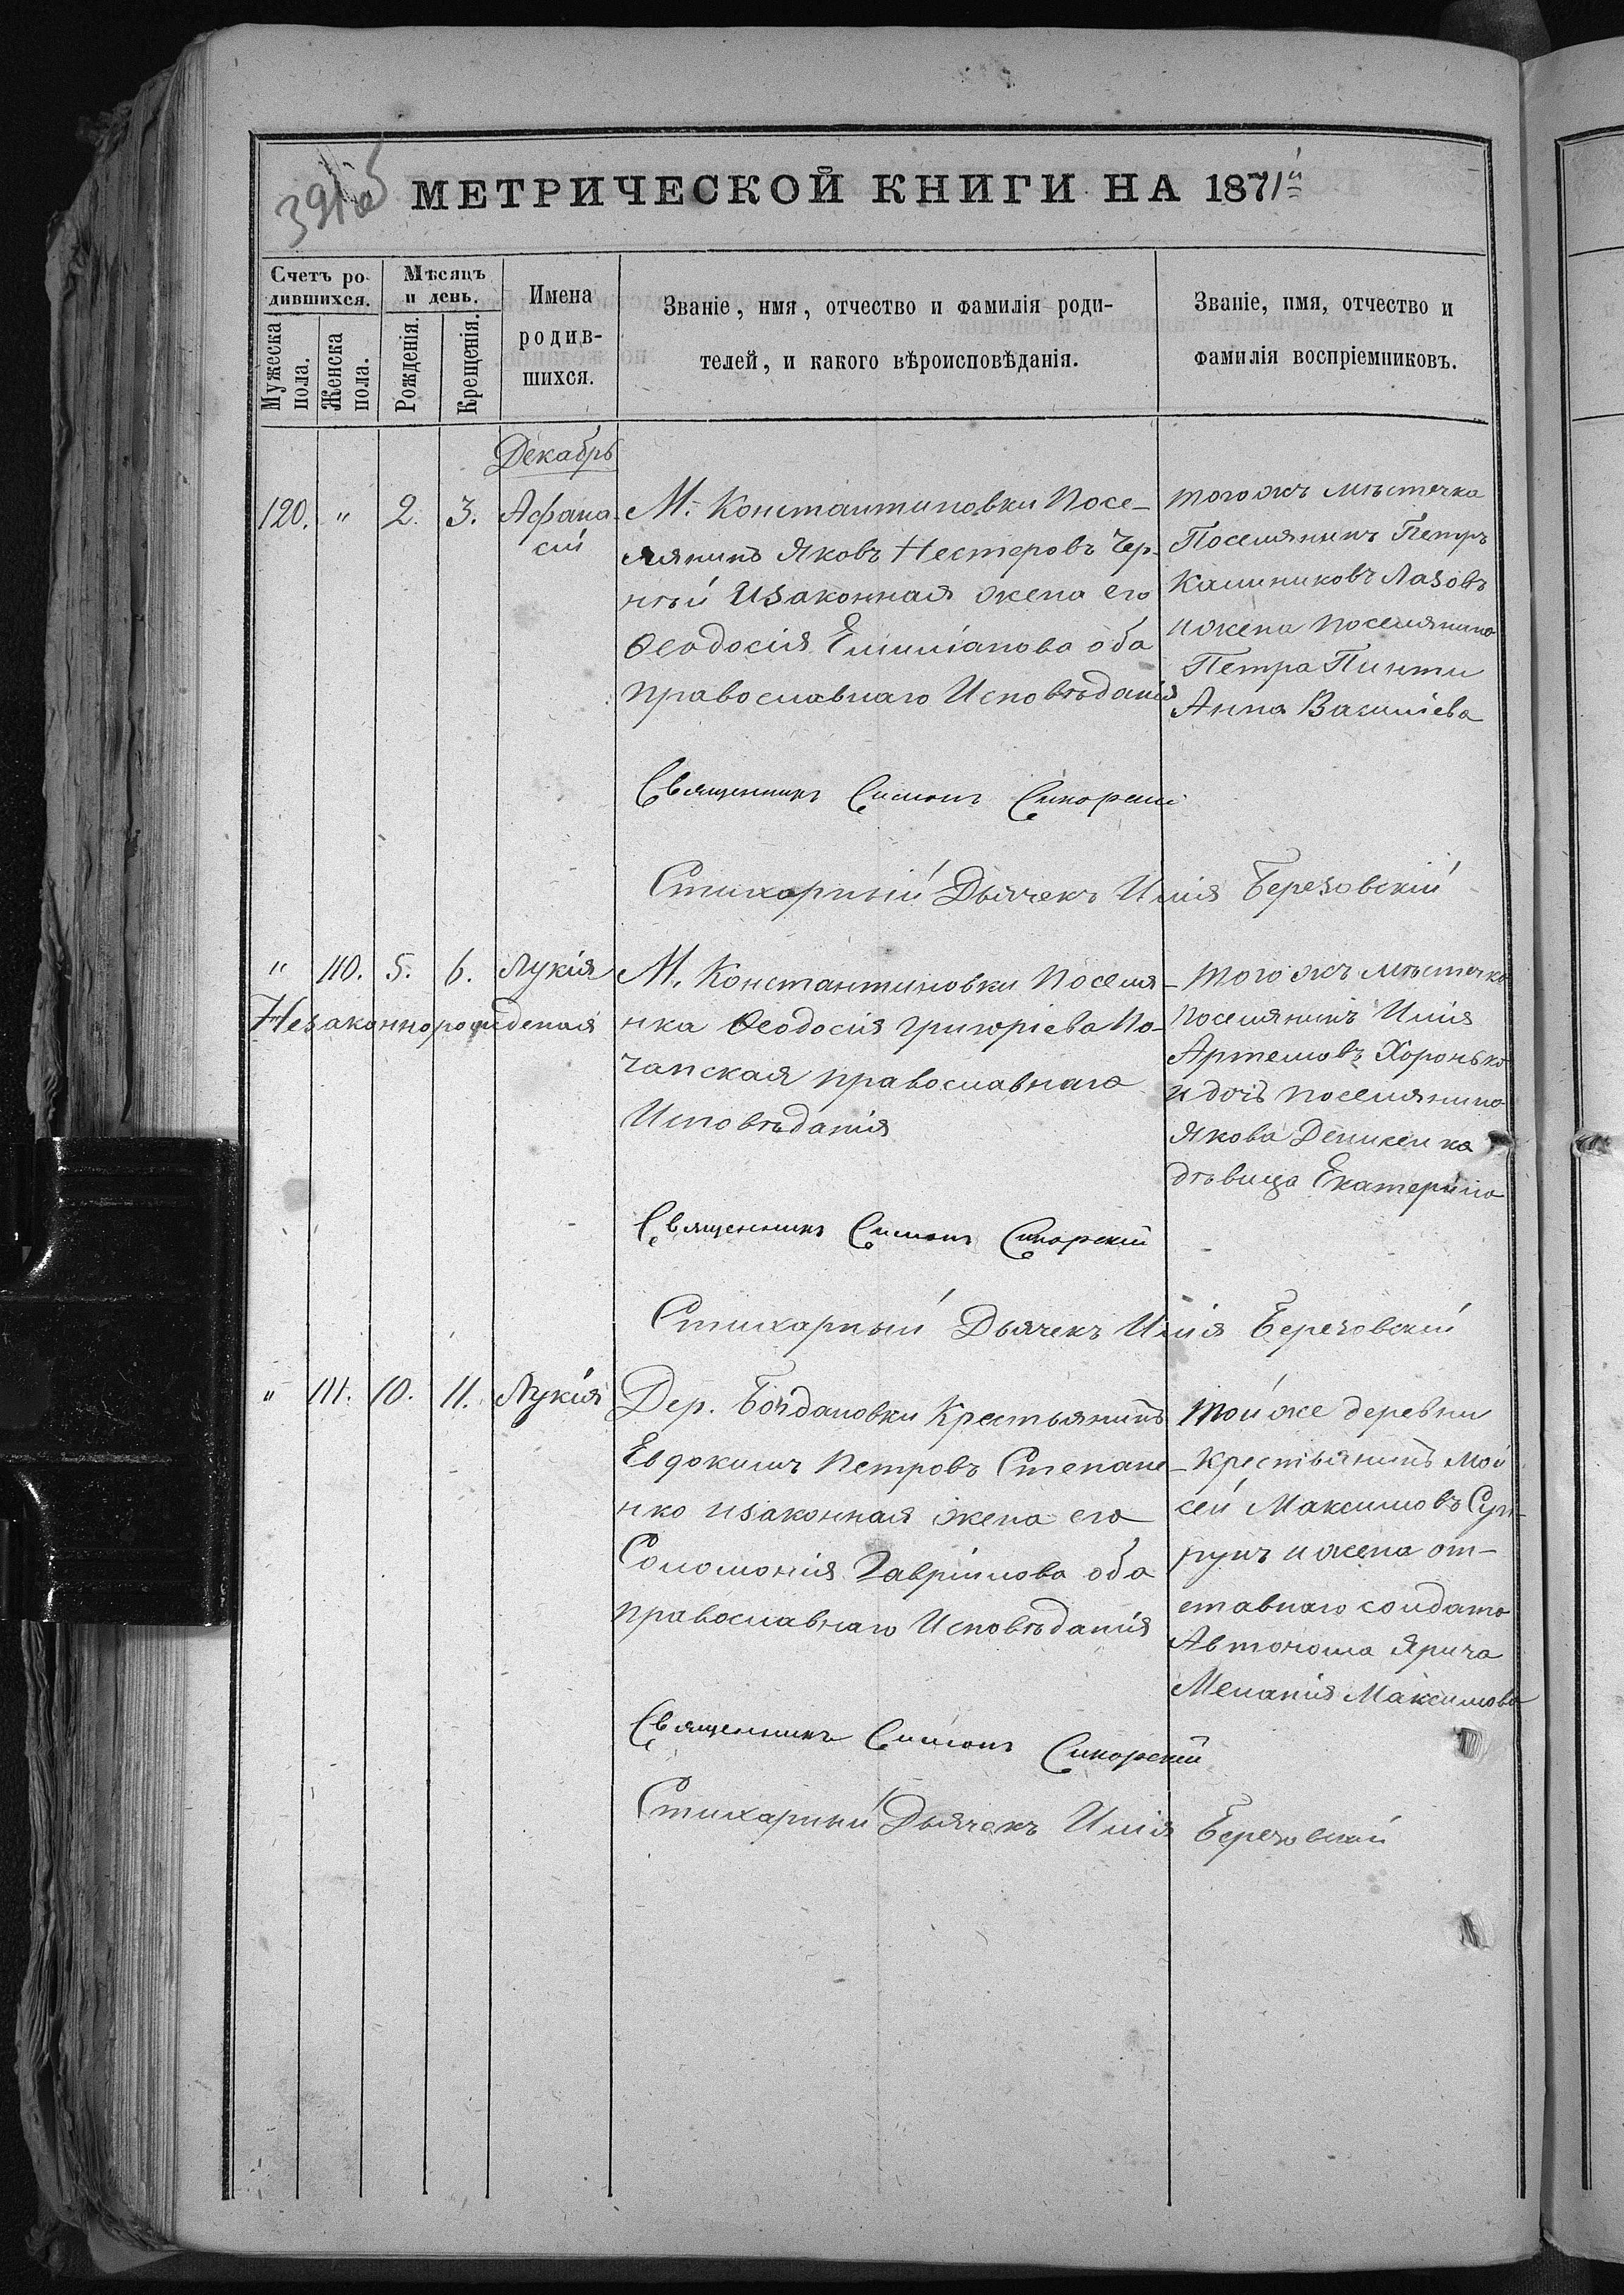 МЕТРИЧЕСКОЙ КНИГИ НА 1871й
Счетъ ро-
дившихся.
Мужеска пола.
Женска пола.
Мѣсяцъ
и день.
Рожденія.
Крещенія.
Имена
родив-
шихся.
Званіе, имя, отчество и фамилія роди-
телей, и какого вѣроисповѣданія.
Званіе, имя, отчество и
фамилія воспріемниковъ.
Декабрь
120. " 2. 3. Афана-
сій
М. Константиновки Посе-
лянинъ Яковъ Нестеровъ Чер-
ный Изаконная жена его
Ѳеодосія Емиліанова оба
православнаго Исповѣданія
тогожъ мѣстечка
Поселянинъ Петръ
Калиниковъ Лазовъ
ижена поселянина
Петра Пинти
Анна Василіева
Священникъ Симонъ Сикорскій
Стихарный Дьячекъ Илія Березовскій
" 110. 5. 6. Лукія
Незаконнорожденая
М. Константиновки Поселя-
нка Ѳеодосія григоріева По-
чапская православнаго
Исповѣданія
тогожъ мѣстечка
поселянинъ Илія
Артемовъ Хоронько
и дочь поселянина
Якова Деникенка
дѣвица Екатерина
Священникъ Симонъ Сикорскій
Стихарный Дьячекъ Илія Березовскій
" 111. 10. 11. Лукія
Дер. Богдановки Крестьянинъ
Евдокимъ Петровъ Степане-
нко изаконная жена его
Соломонія Гавріилова оба
православнаго Исповѣданія
той же деревни
Крестьянинъ Мои
сей Максимовъ Суп-
рунъ ижена от-
ставнаго солдата
Автонома Ярича
Меланія Максимова
Священникъ Симонъ Сикорскій
Стихарный Дьячекъ Илія Березовскій